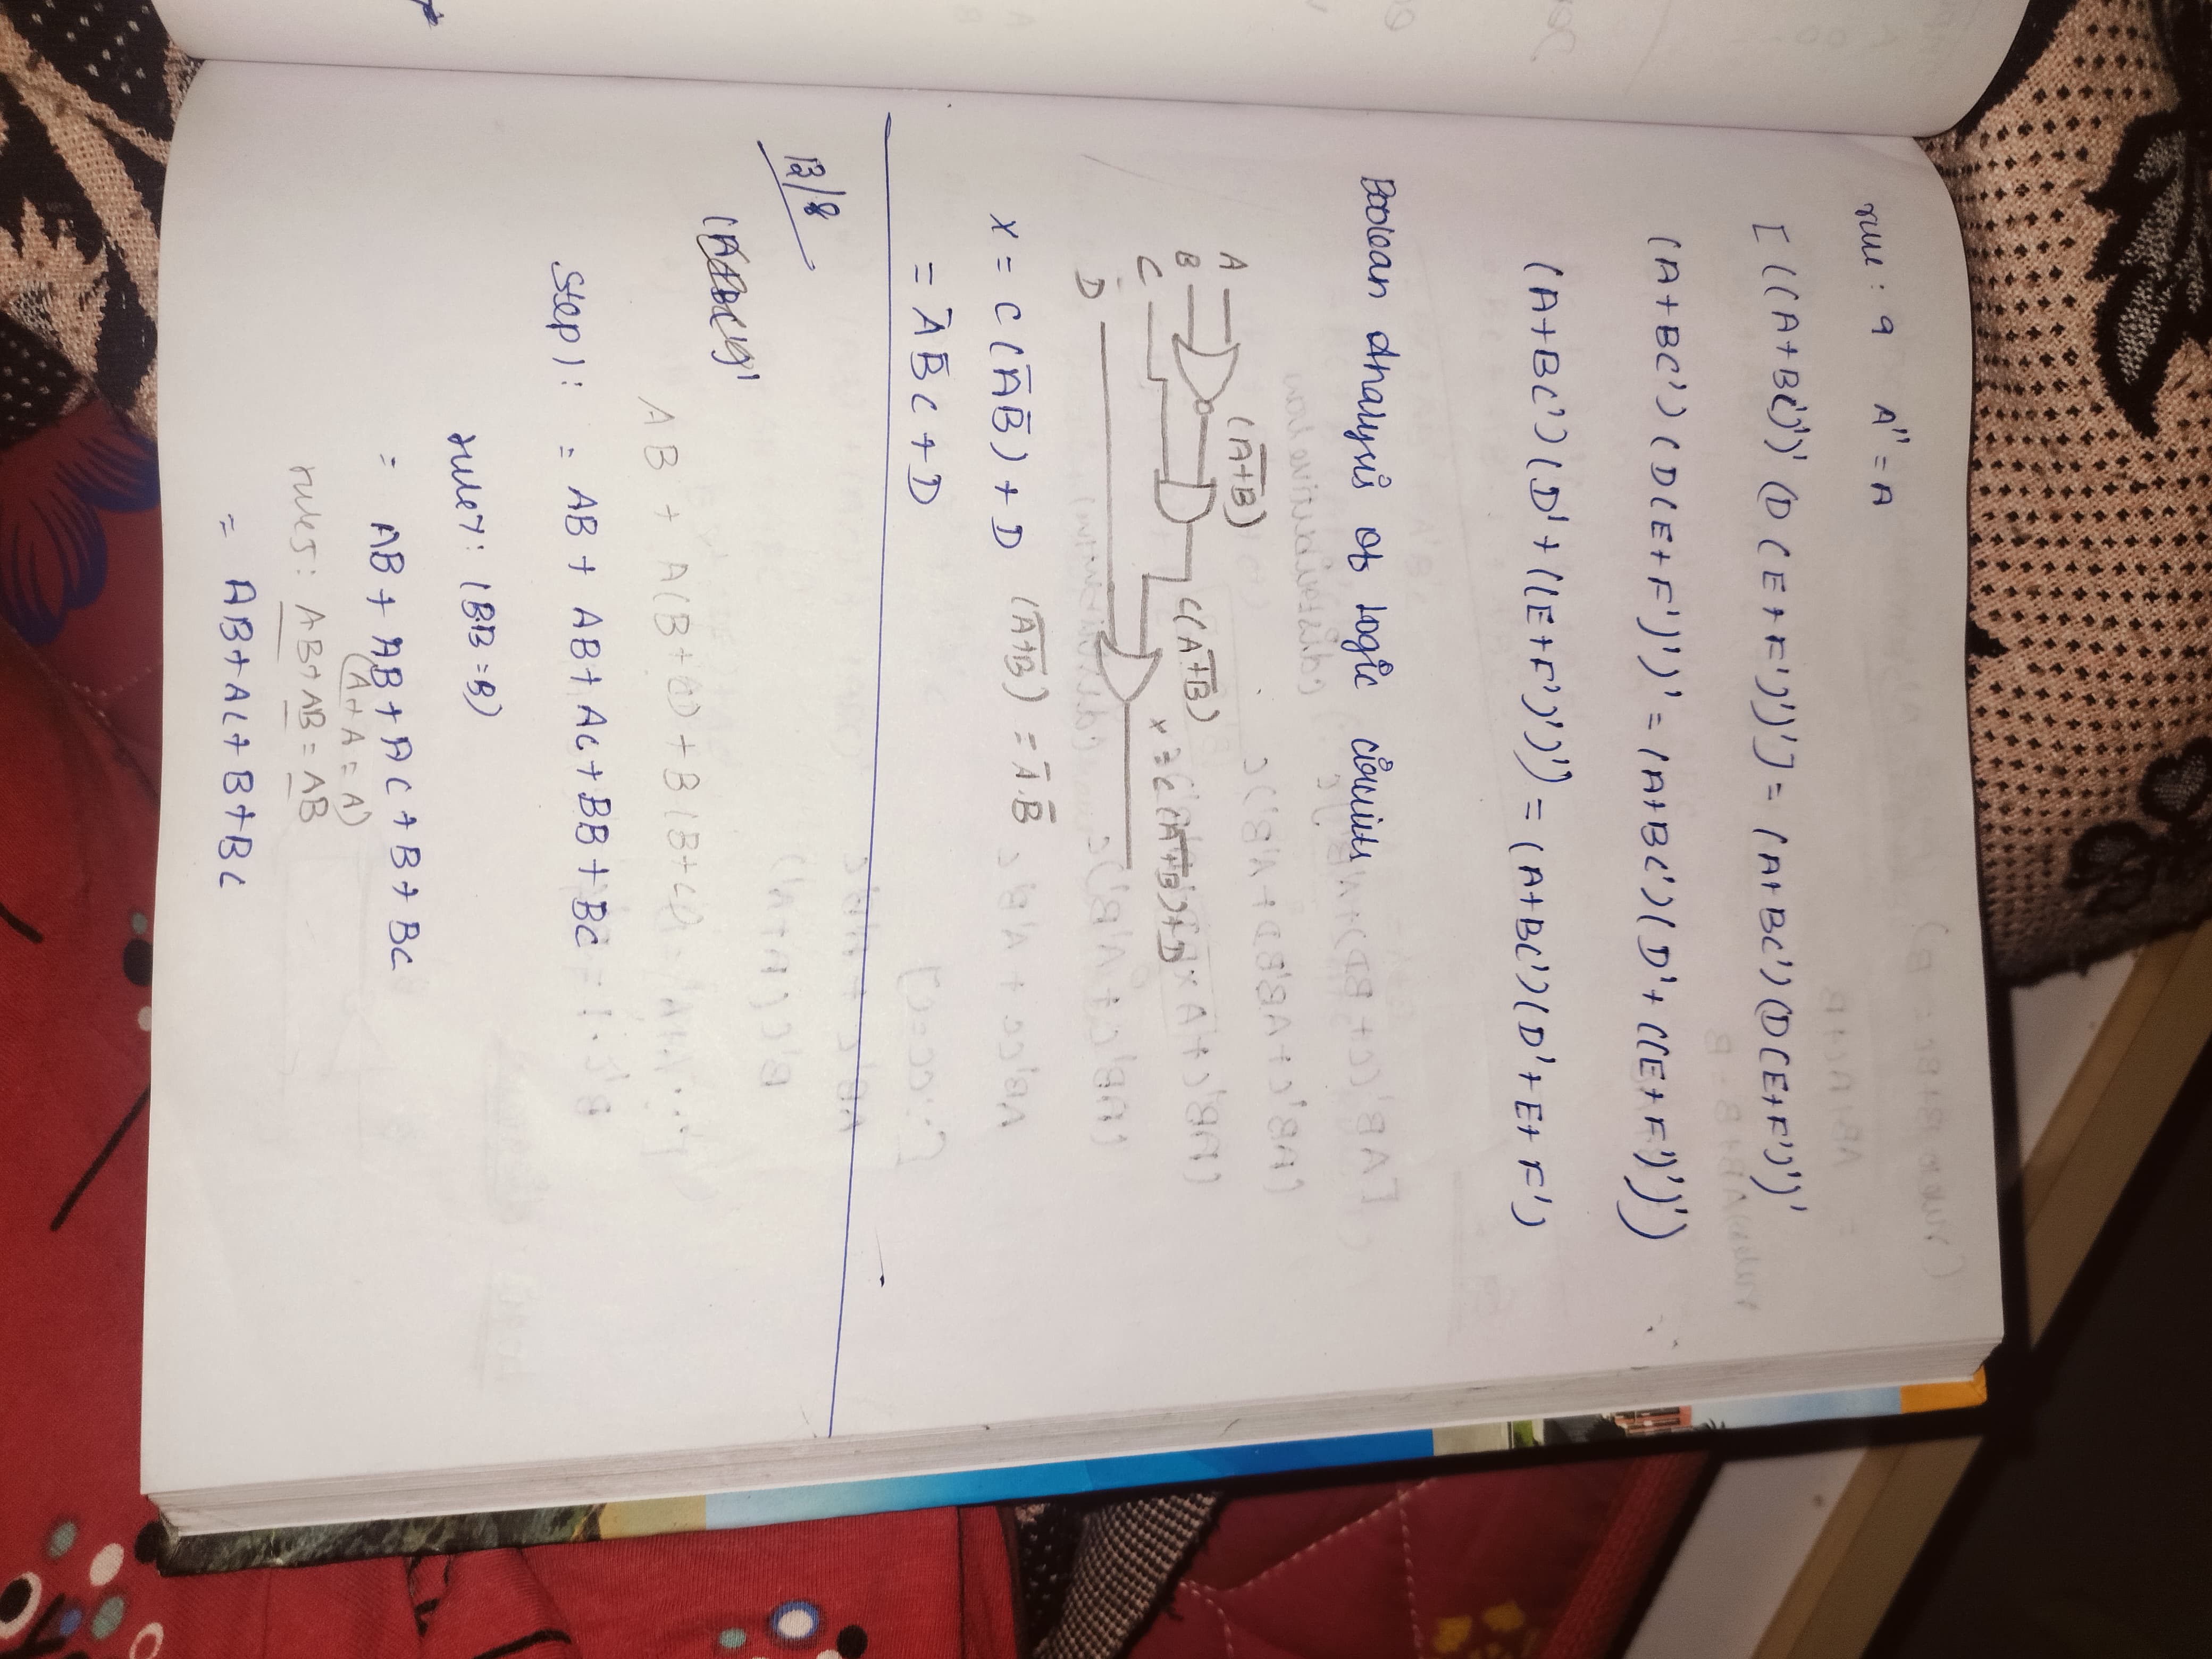 rule : 9 A'' = A
[((A+BC')')' (D(E+F')')'] = (A+BC')(D(E+F')')'
(A+BC')(D(E+F')')' = (A+BC')(D'+((E+F')')')
(A+BC')(D'+((E+F')')') = (A+BC')(D'+E+F')
Boolean Analysis of logic circuits
A
B
C
D
(A̅+̅B̅)
C(A̅+̅B̅)
x = C(A̅+̅B̅)+D
x = C(A̅B̅)+D (A̅+̅B̅) = A̅.B̅
= A̅B̅C+D
12/8
AB + A(B+C) + B(B+C)
Step 1: = AB + AB + AC + BB + BC
rule 7: (BB = B)
= AB + AB + AC + B + BC
(A+A = A)
rule 5: AB + AB = AB
= AB + AC + B + BC